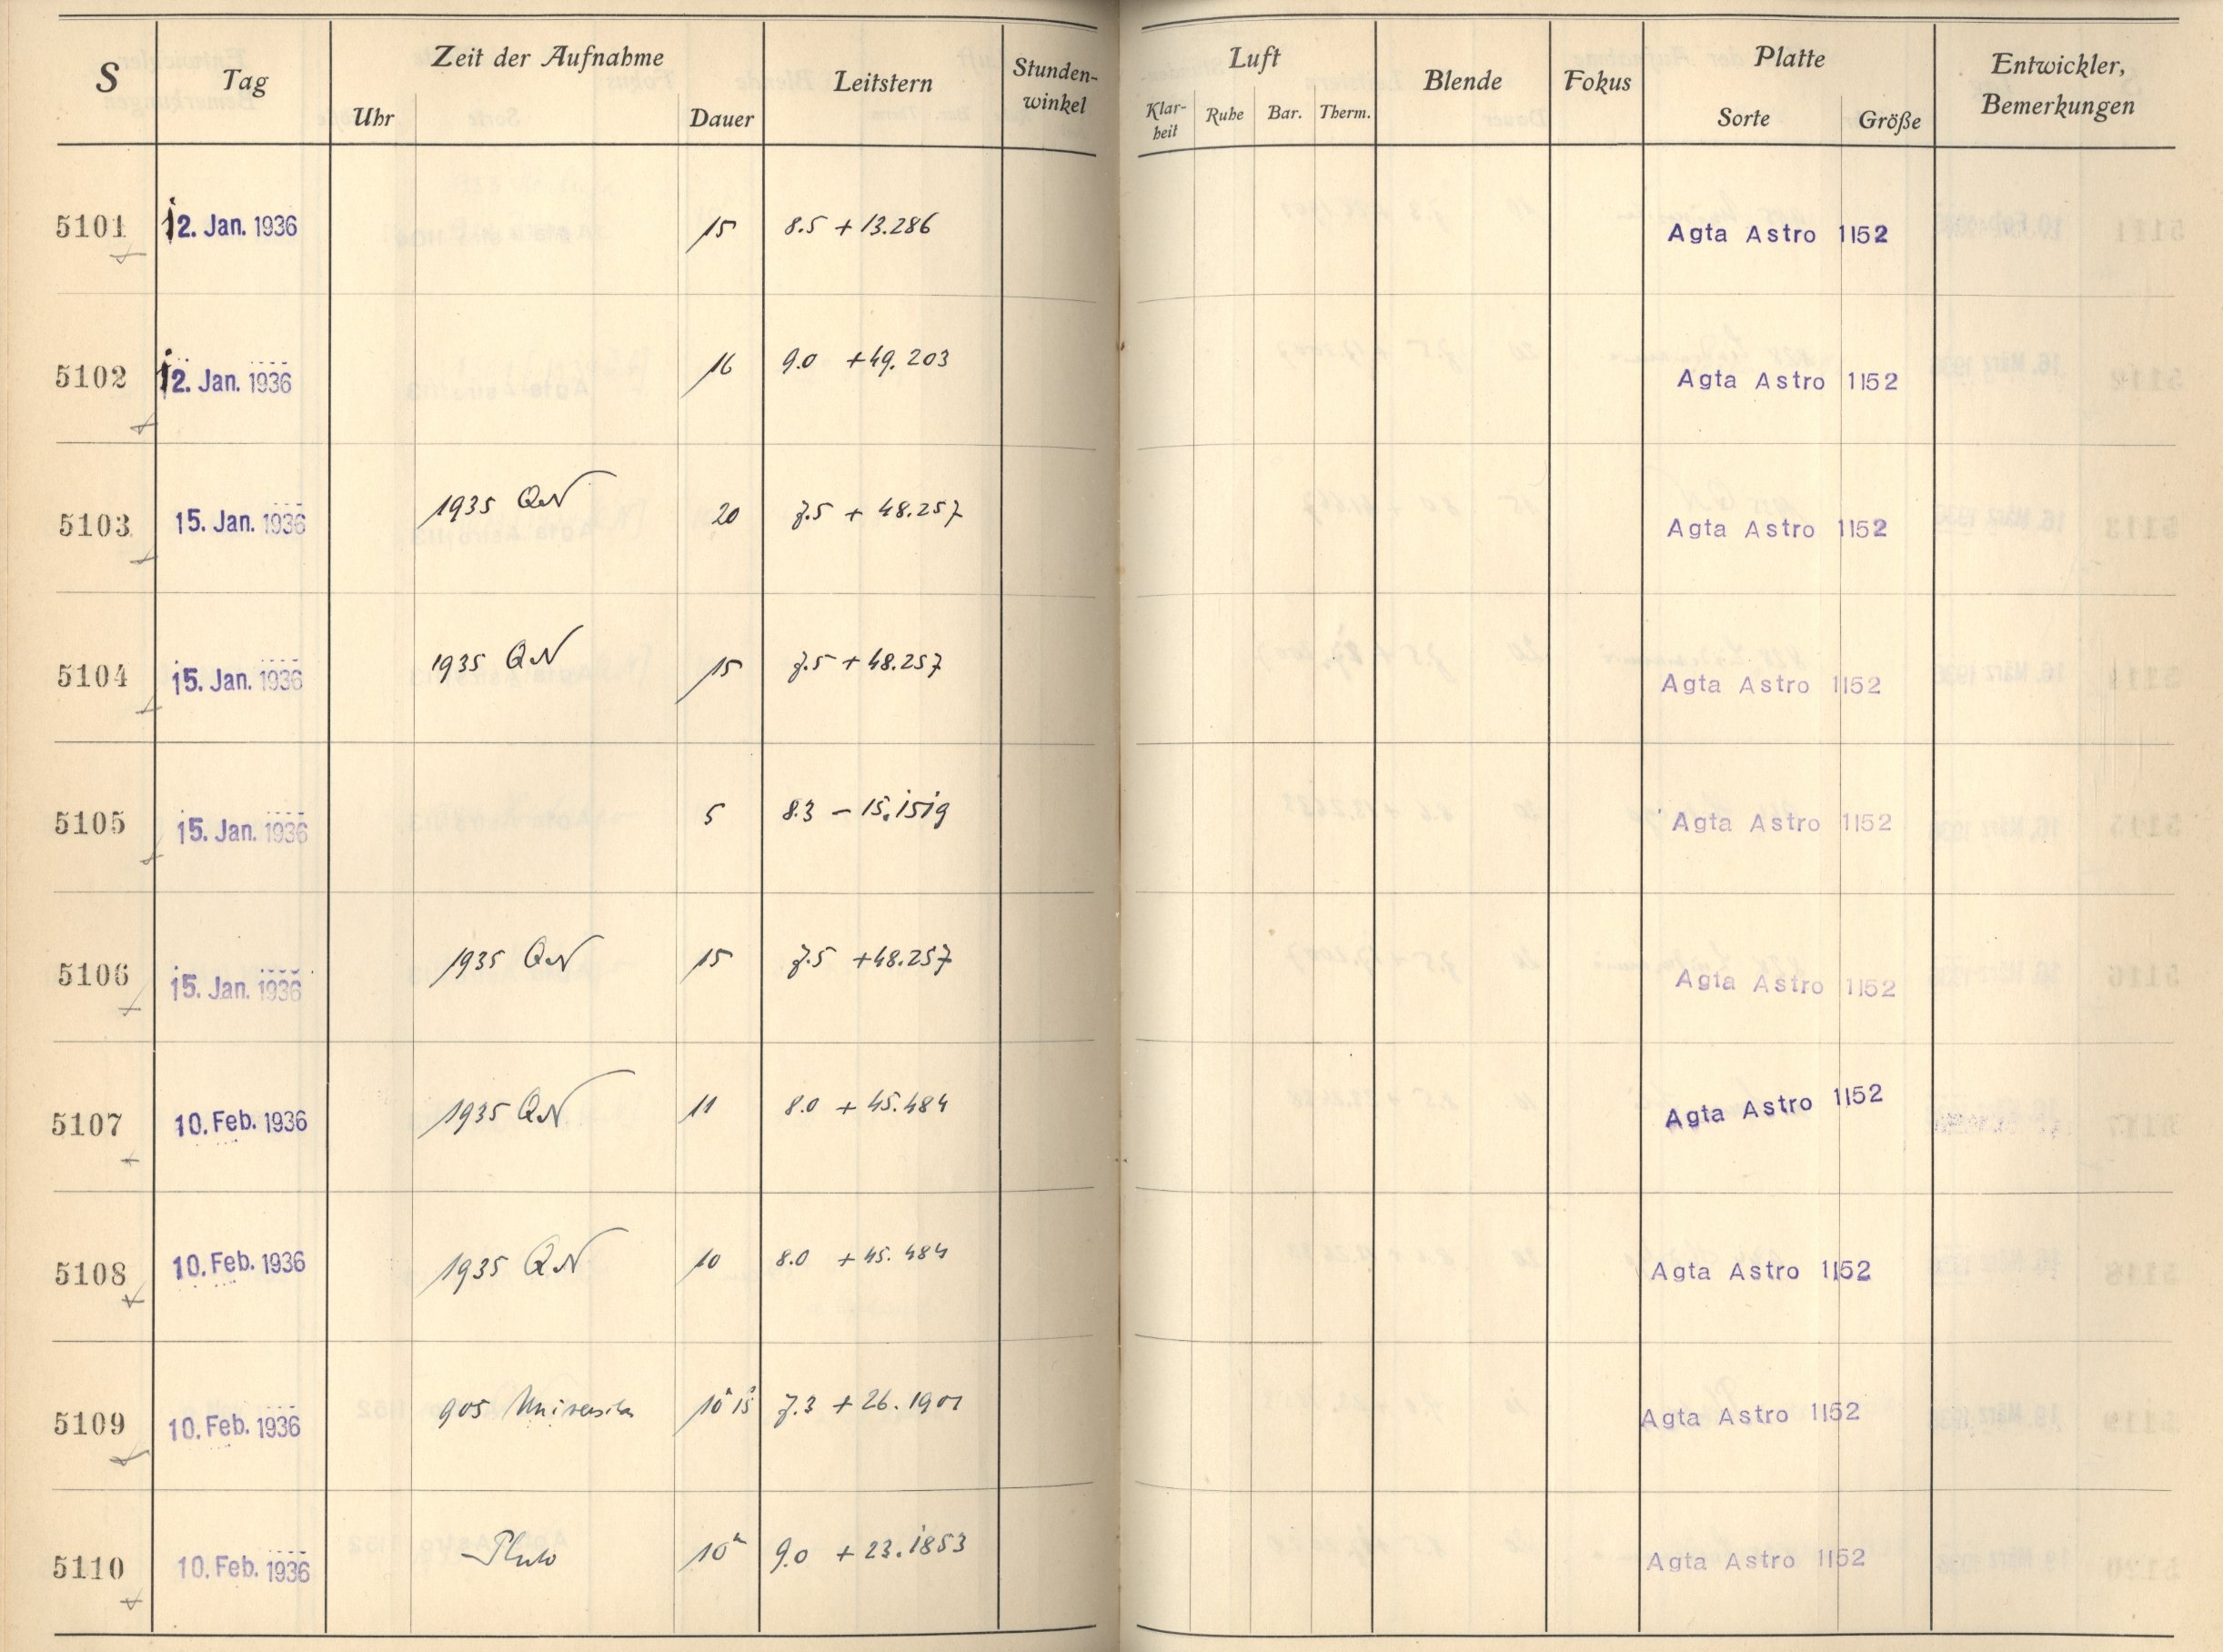 S Tag Zeit der Aufnahme Leitstern Stunden-winkel Luft Blende Fokus Platte Entwickler, Bemerkungen
Uhr Dauer Klar-heit Ruhe Bar. Therm. Sorte Größe
5101 12. Jan. 1936 15 8.5 + 13.286 Agta Astro 1152
5102 12. Jan. 1936 16 9.0 + 49.203 Agta Astro 1152
5103 15. Jan. 1936 1935 QN 20 7.5 + 48.257 Agta Astro 1152
5104 15. Jan. 1936 1935 QN 15 7.5 + 48.257 Agta Astro 1152
5105 15. Jan. 1936 5 8.3 – 15.1519 Agta Astro 1152
5106 15. Jan. 1936 1935 QN 15 7.5 + 48.257 Agta Astro 1152
5107 10. Feb. 1936 1935 QN 11 8.0 + 45.484 Agta Astro 1152
5108 10. Feb. 1936 1935 QN 10 8.0 + 45.484 Agta Astro 1152
5109 10. Feb. 1936 905 Universitas 10 15 7.3 + 26.1901 Agta Astro 1152
5110 10. Feb. 1936 Pluto 10 9.0 + 23.1853 Agta Astro 1152